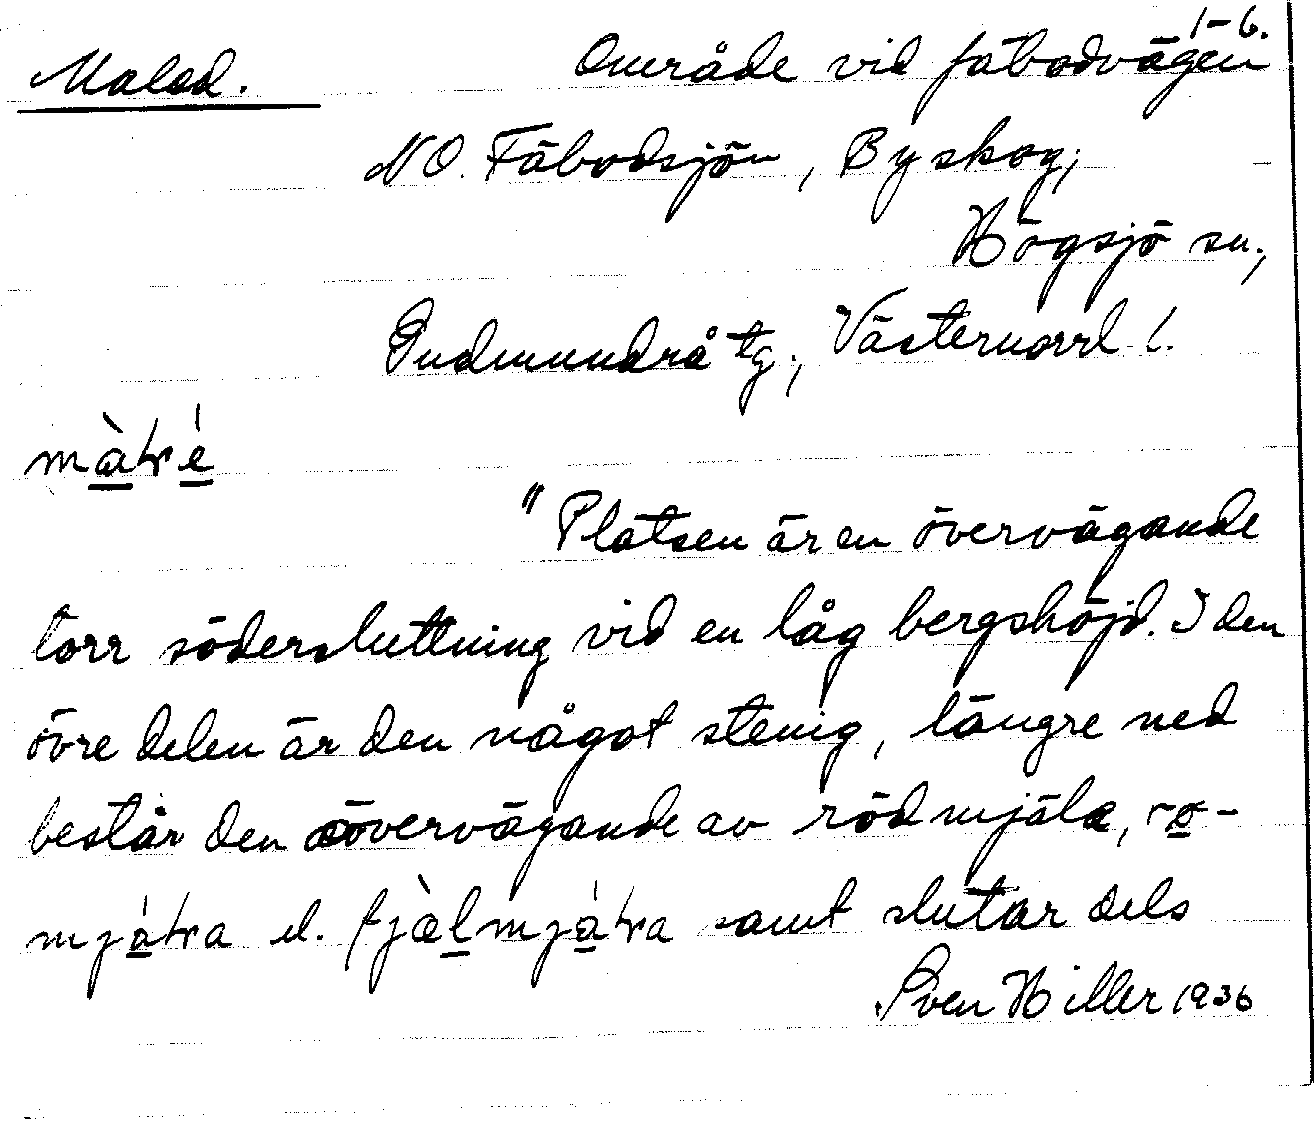 1-6.
Malad. Område vid fäbodvägen
NO. Fäbodsjön, Byskog,
Högsjö sn.,
Gudmundrå tg., Västernorrl l.
"Platsen är en övervägande
torr södersluttning vid en låg bergshöjd. I den
övre delen är den något stenig, längre ned
består den övervägande av rödmjäla,
el. samt slutar dels
Sven Hiller 1936